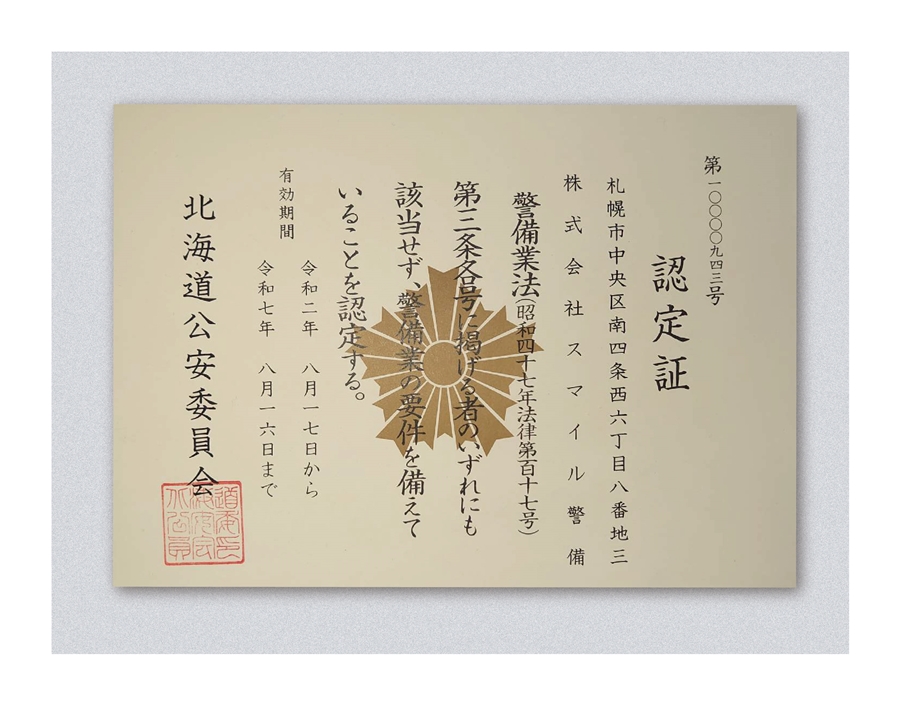 第一〇〇〇〇九四三号
認定証
札幌市中央区南四条西六丁目八番地三
株式会社スマイル警備
警備業法(昭和四十七年法律第百十七号)
第三条各号に掲げる者のいずれにも
該当せず、警備業の要件を備えて
いることを認定する。
有効期間
令和二年 八月一七日から
令和七年 八月一六日まで
北海道公安委員会